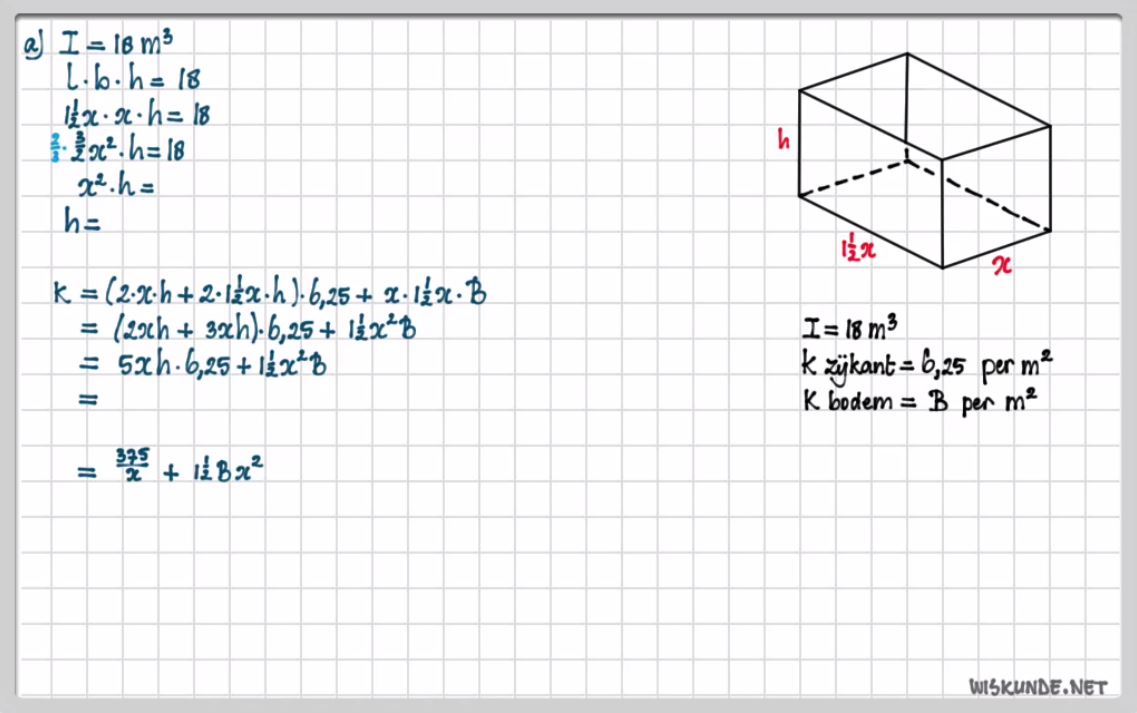 a) I = 18 m³
l · b · h = 18
1½x · x · h = 18
2/3 · 3/2 x² · h = 18
x² · h =
h =
K = (2·x·h + 2·1½x·h)·6,25 + x·1½x·B
= (2xh + 3xh)·6,25 + 1½x²B
= 5xh·6,25 + 1½x²B
=
= 375/x + 1½Bx²
h
1½x
x
I = 18 m³
K zijkant = 6,25 per m²
K bodem = B per m²
WISKUNDE.NET